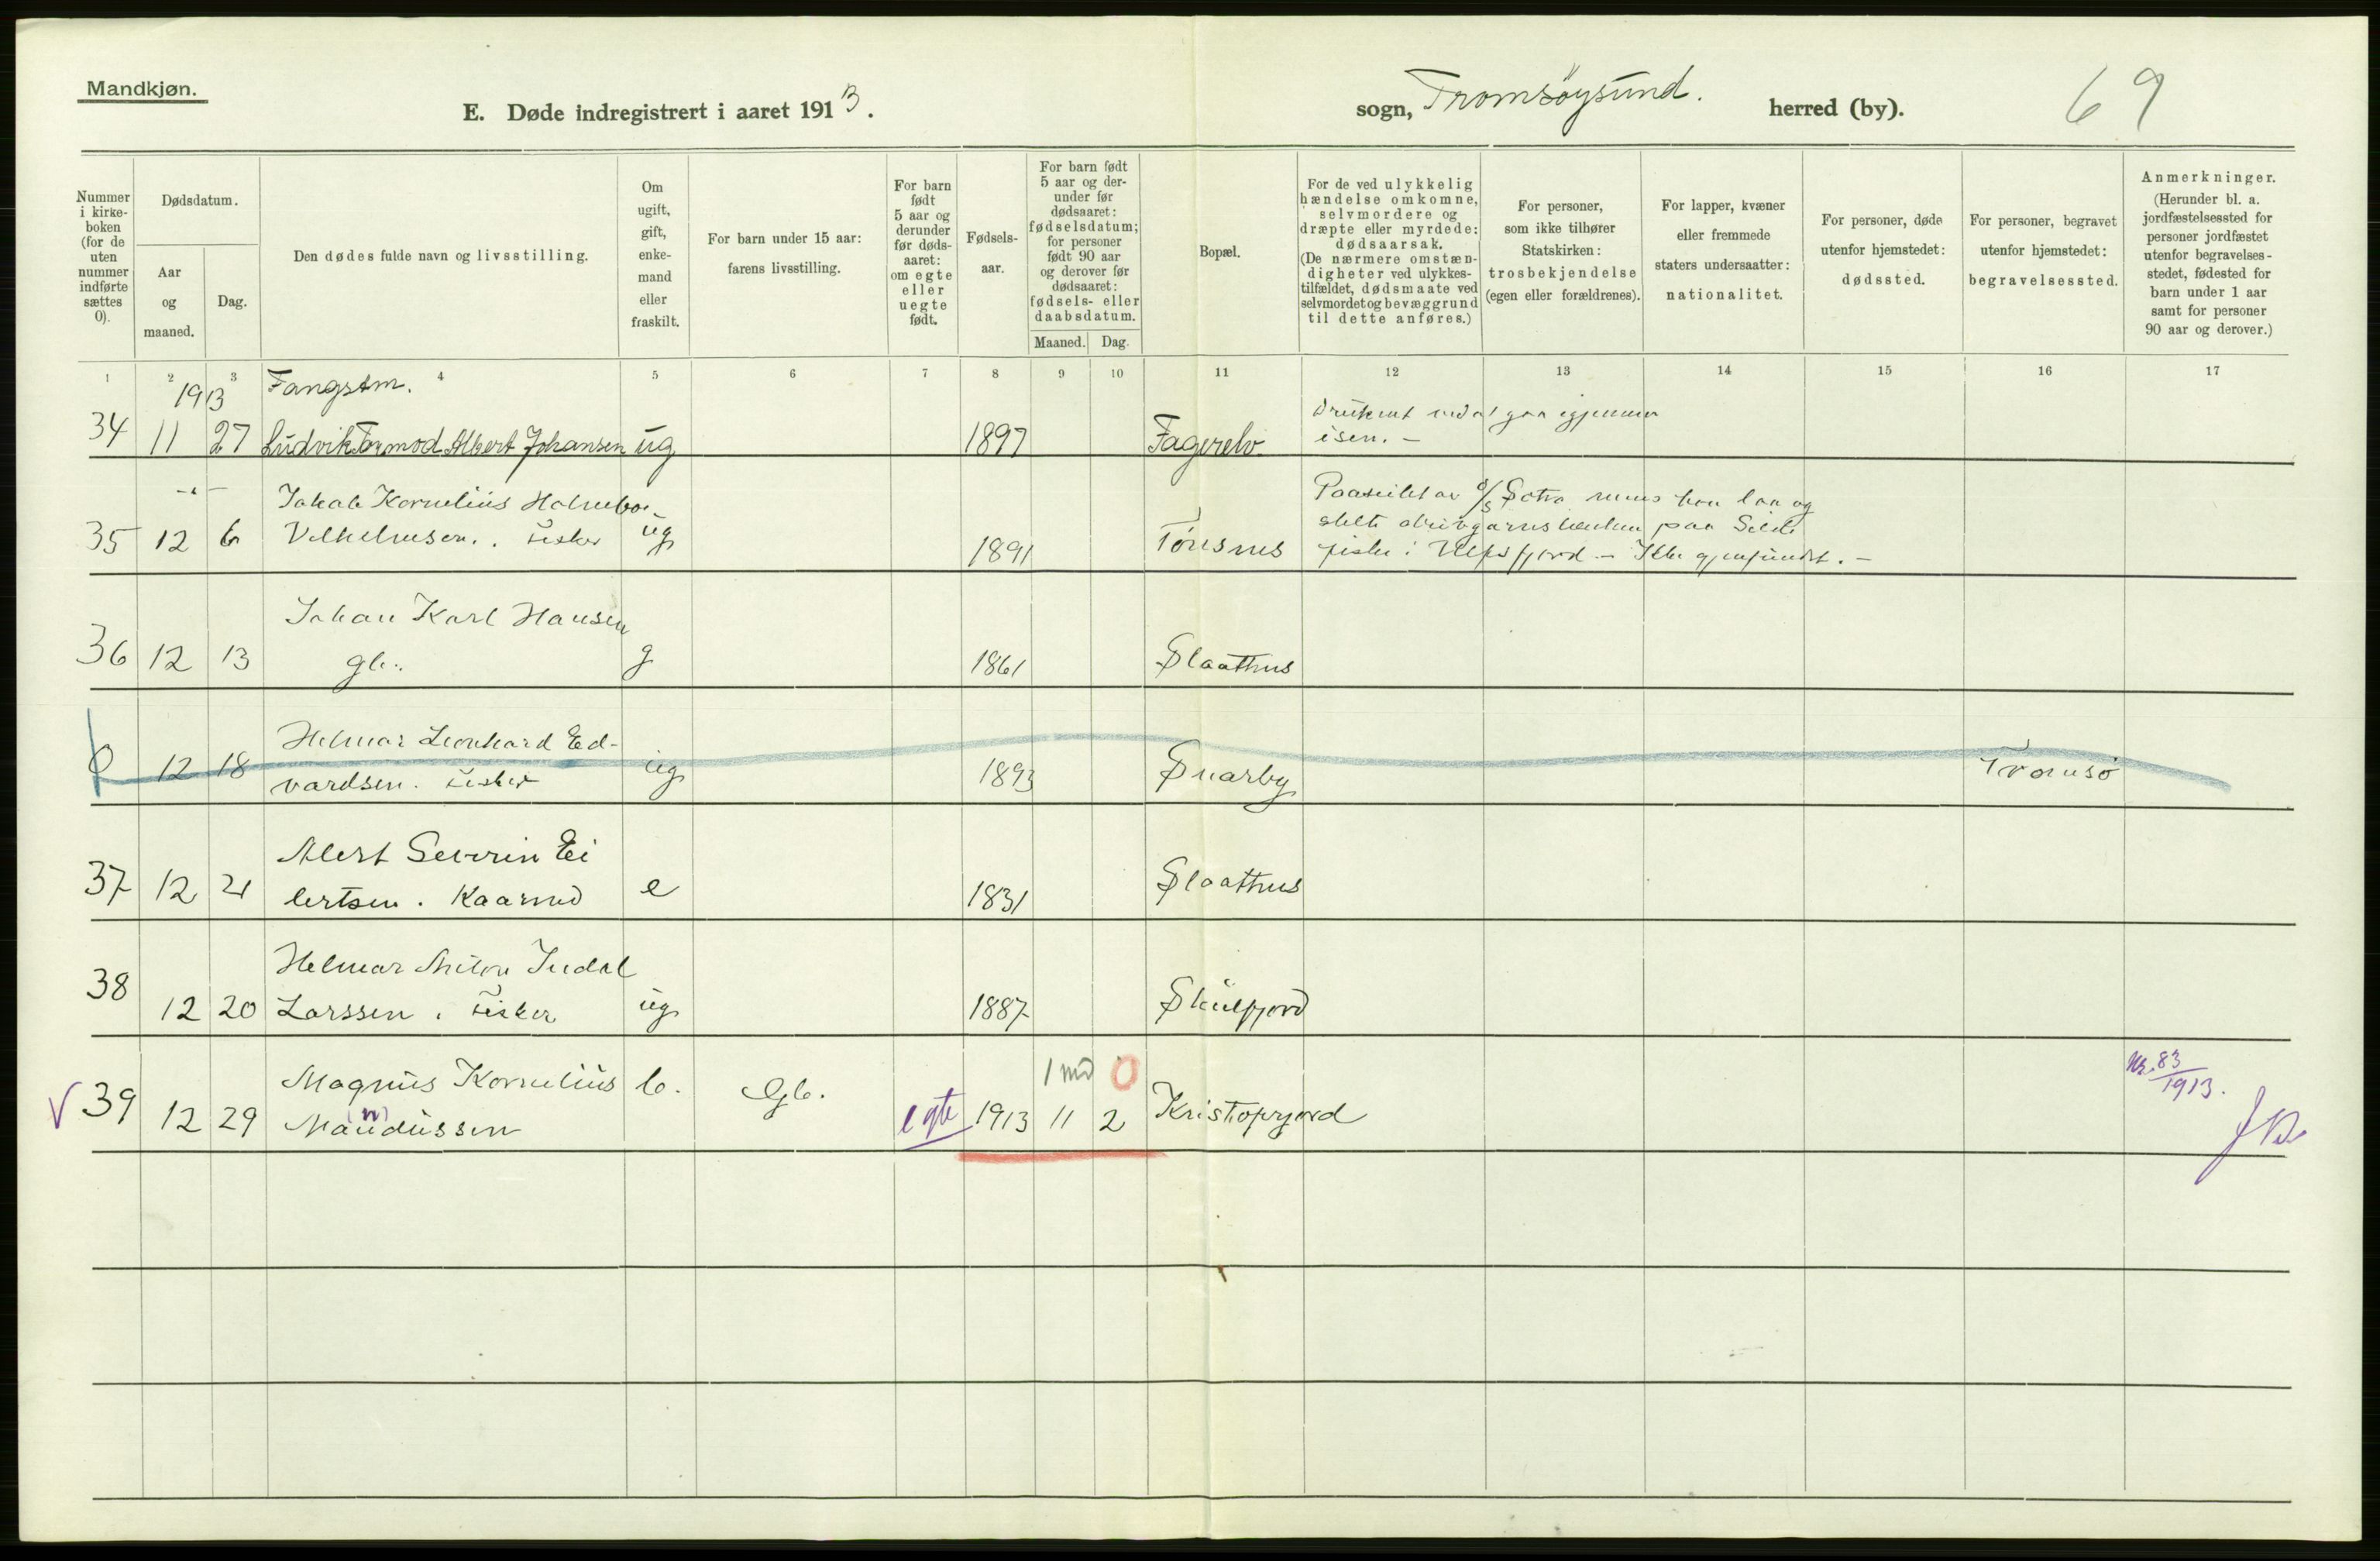 Mandkjøn.
E. Døde indregistrert i aaret 1913.
sogn, Tromsøysund. herred (by).
69
Nummer i kirke-boken (for de uten nummer indførte sættes 0).
Dødsdatum.
Aar og maaned.
Dag.
Den dødes fulde navn og livsstilling.
Om ugift, gift, enke-mand eller fraskilt.
For barn under 15 aar: farens livsstilling.
For barn født 5 aar og derunder før døds-aaret: om egte eller uegte født.
Fødsels-aar.
For barn født 5 aar og der-under før dødsaaret: fødselsdatum; for personer født 90 aar og derover før dødsaaret: fødsels- eller daabsdatum.
Maaned. Dag.
Bopæl.
For de ved ulykkelig hændelse omkomne, selvmordere og dræpte eller myrdede: dødsaarsak. (De nærmere omstæn-digheter ved ulykkes-tilfældet, dødsmaate ved selvmordet og bevæggrund til dette anføres.)
For personer, som ikke tilhører Statskirken: trosbekjendelse (egen eller forældrenes).
For lapper, kvæner eller fremmede staters undersaatter: nationalitet.
For personer, døde utenfor hjemstedet: dødssted.
For personer, begravet utenfor hjemstedet: begravelsessted.
Anmerkninger. (Herunder bl. a. jordfæstelsessted for personer jordfæstet utenfor begravelses-stedet, fødested for barn under 1 aar samt for personer 90 aar og derover.)
1 2 3 4 5 6 7 8 9 10 11 12 13 14 15 16 17
1913 Fangstm.
34 11 27 Ludvik Tormod Albert Johansen ug 1897 Fagerelv Druknet ved at gaa igjennem
isen. -
-"- Jakob Kornelius Holmboe
35 12 6 Vilhelmsen. Fisker ug 1891 Tønsnes Paaseilet av D/S Sotra mens han laa og
stelte drivgarnslenken paa Silde
fiske i Ulfsfjord - Ikke gjenfundet. -
Johan Karl Hansen
36 12 13 gb. g 1861 Slaatnes
Helmar Leonhard Ed-
0 12 18 vardsen. Fisker ug 1893 Snarby Tromsø
Albert Severin Ei
37 12 21 lertsen. Kaarmd e 1831 Slaatnes
Helmar Indal
38 12 20 Larssen. Fisker ug 1887 Skulfjord
Magnus Kornelius b. Gb. 1 md 0 Nr. 83
1913.
39 12 29 Mandussen (n) egte 1913 11 2 Kristofjord